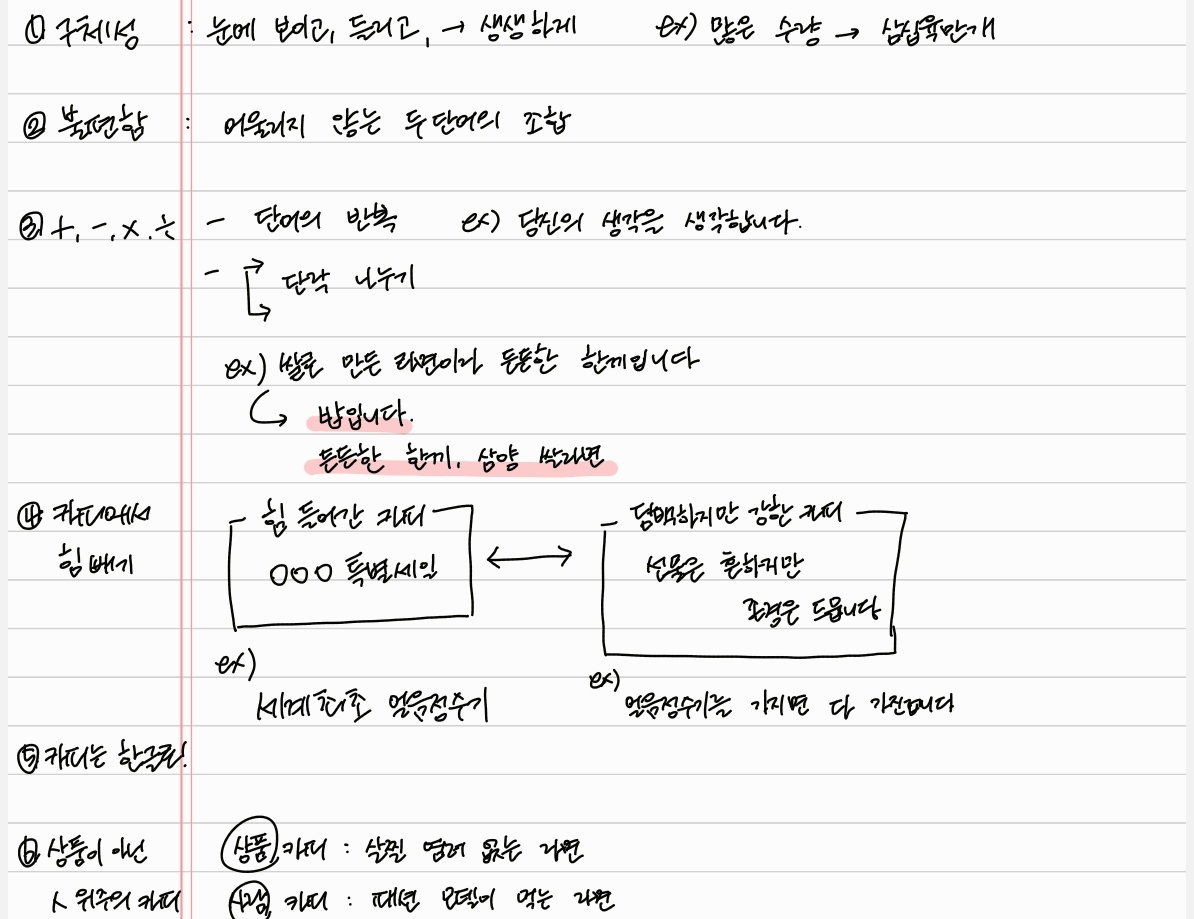 ① 구체성 : 눈에 보이고, 들리고, → 생생하게 ex) 많은 수량 → 삼십육만개
② 불편함 : 어울리지 않는 두단어의 조합
③ +, -, ×, ÷ - 단어의 반복 ex) 당신의 생각을 생각합니다.
- 단락 나누기
ex) 쌀로 만든 라면이라 든든한 한끼입니다
밥입니다.
든든한 한끼, 삼양 쌀라면
④ 카피에서 힘 들어간 카피 담백하지만 강한 카피
힘 빼기 OOO 특별세일 ↔ 선물은 흔하지만
존경은 드뭅니다
ex) ex)
세계최초 얼음정수기 얼음정수기를 가지면 다 가진겁니다
⑤ 카피는 한글로!
⑥ 상품이 아닌 상품 카피 : 살찔 염려 없는 라면
人 위주의 카피 사람 카피 : 패션 모델이 먹는 라면